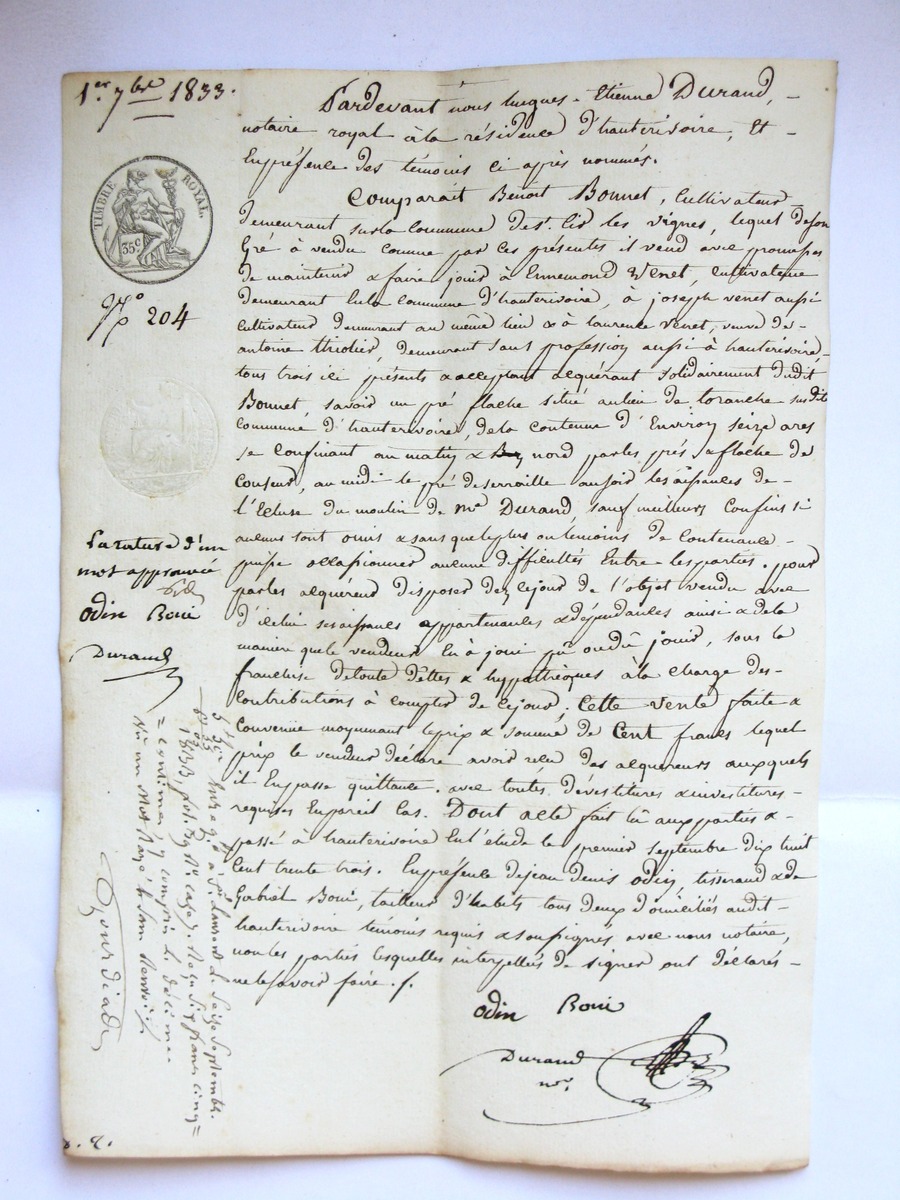 1er. 7bre 1833.
TIMBRE ROYAL.
35c
No 204
Pardevant nous hugues-Etienne Durand, -
notaire royal à la résidence d'hauterivoire, Et -
Enpresence des témoins ci après nommés.
Comparait Benoit Bonnet, Cultivateur
demeurant surla Commune de st. Cir les vignes, lequel deson
gré à vendu comme par ces présentes il vend avec promesse
de maintenir & faire jouir à Ennemond Venet, Cultivateur
demeurant enla Commune d'hauterivoire, à joseph venet aussi
Cultivateur demeurant au même lieu & à laurence Venet, veuve de-
antoine thiolier, demeurant sans profession aussi à hauterivoire,
tous trois ici présents & acceptant acquérant solidairement dudit
Bonnet, savoir un pré flache situé aulieu de toranche susdite
Commune d'hauterivoire, dela contenue d'Environ seize ares
se Confinant au matin & nord parles prés & flache de
Couseur, au midi le pré deserraille ausoir les aisances de-
l'Ecluse du moulin de me Durand, sauf meilleurs Confins si
aucuns sont omis & sans quele plus ou lemoins de Contenance -
puisse occasionner aucune difficultés Entre lesparties. pour
parles acquéreurs disposer dez cejour de l'objet vendu avec
d'icelui sesaisances appartenances & dépendances ainsi & dela
manière quele vendeur En à joui pu oudû jouir, sous la
franchise detoute dettes & hypothèques àla charge des-
Contributions à compter de cejour. Cette vente faite &
Convenue moyennant leprix & somme de Cent francs lequel
prix le vendeur déclare avoir reçu des acquereurs auxquels
il Enpasse quittance. avec toutes dévestitures & investitures-
requises Enpareil Cas. Dont acte fait lû aux parties & -
passé à hauterivoire En l'étude le premier septembre dix huit
Cent trente trois. Enpresence dejean denis odin, tisserand & de
Gabriel Boni, tailleur d'habits tous deux domiciliés audit-
hauterivoire témoins requis & soussignés avec nous notaire,
non les parties lesquelles interpellés de signer ont déclarés -
nele savoir faire ./.
odin Boni
Durand
nre.
La rature d'un
mot approuvée
odin Boni
Durand
Enregé à St. Laurent le seize Septembre
1833, fol. Ro. case Reçu six francs cinq=
=centimes y compris le décime
Vu un mot rayé